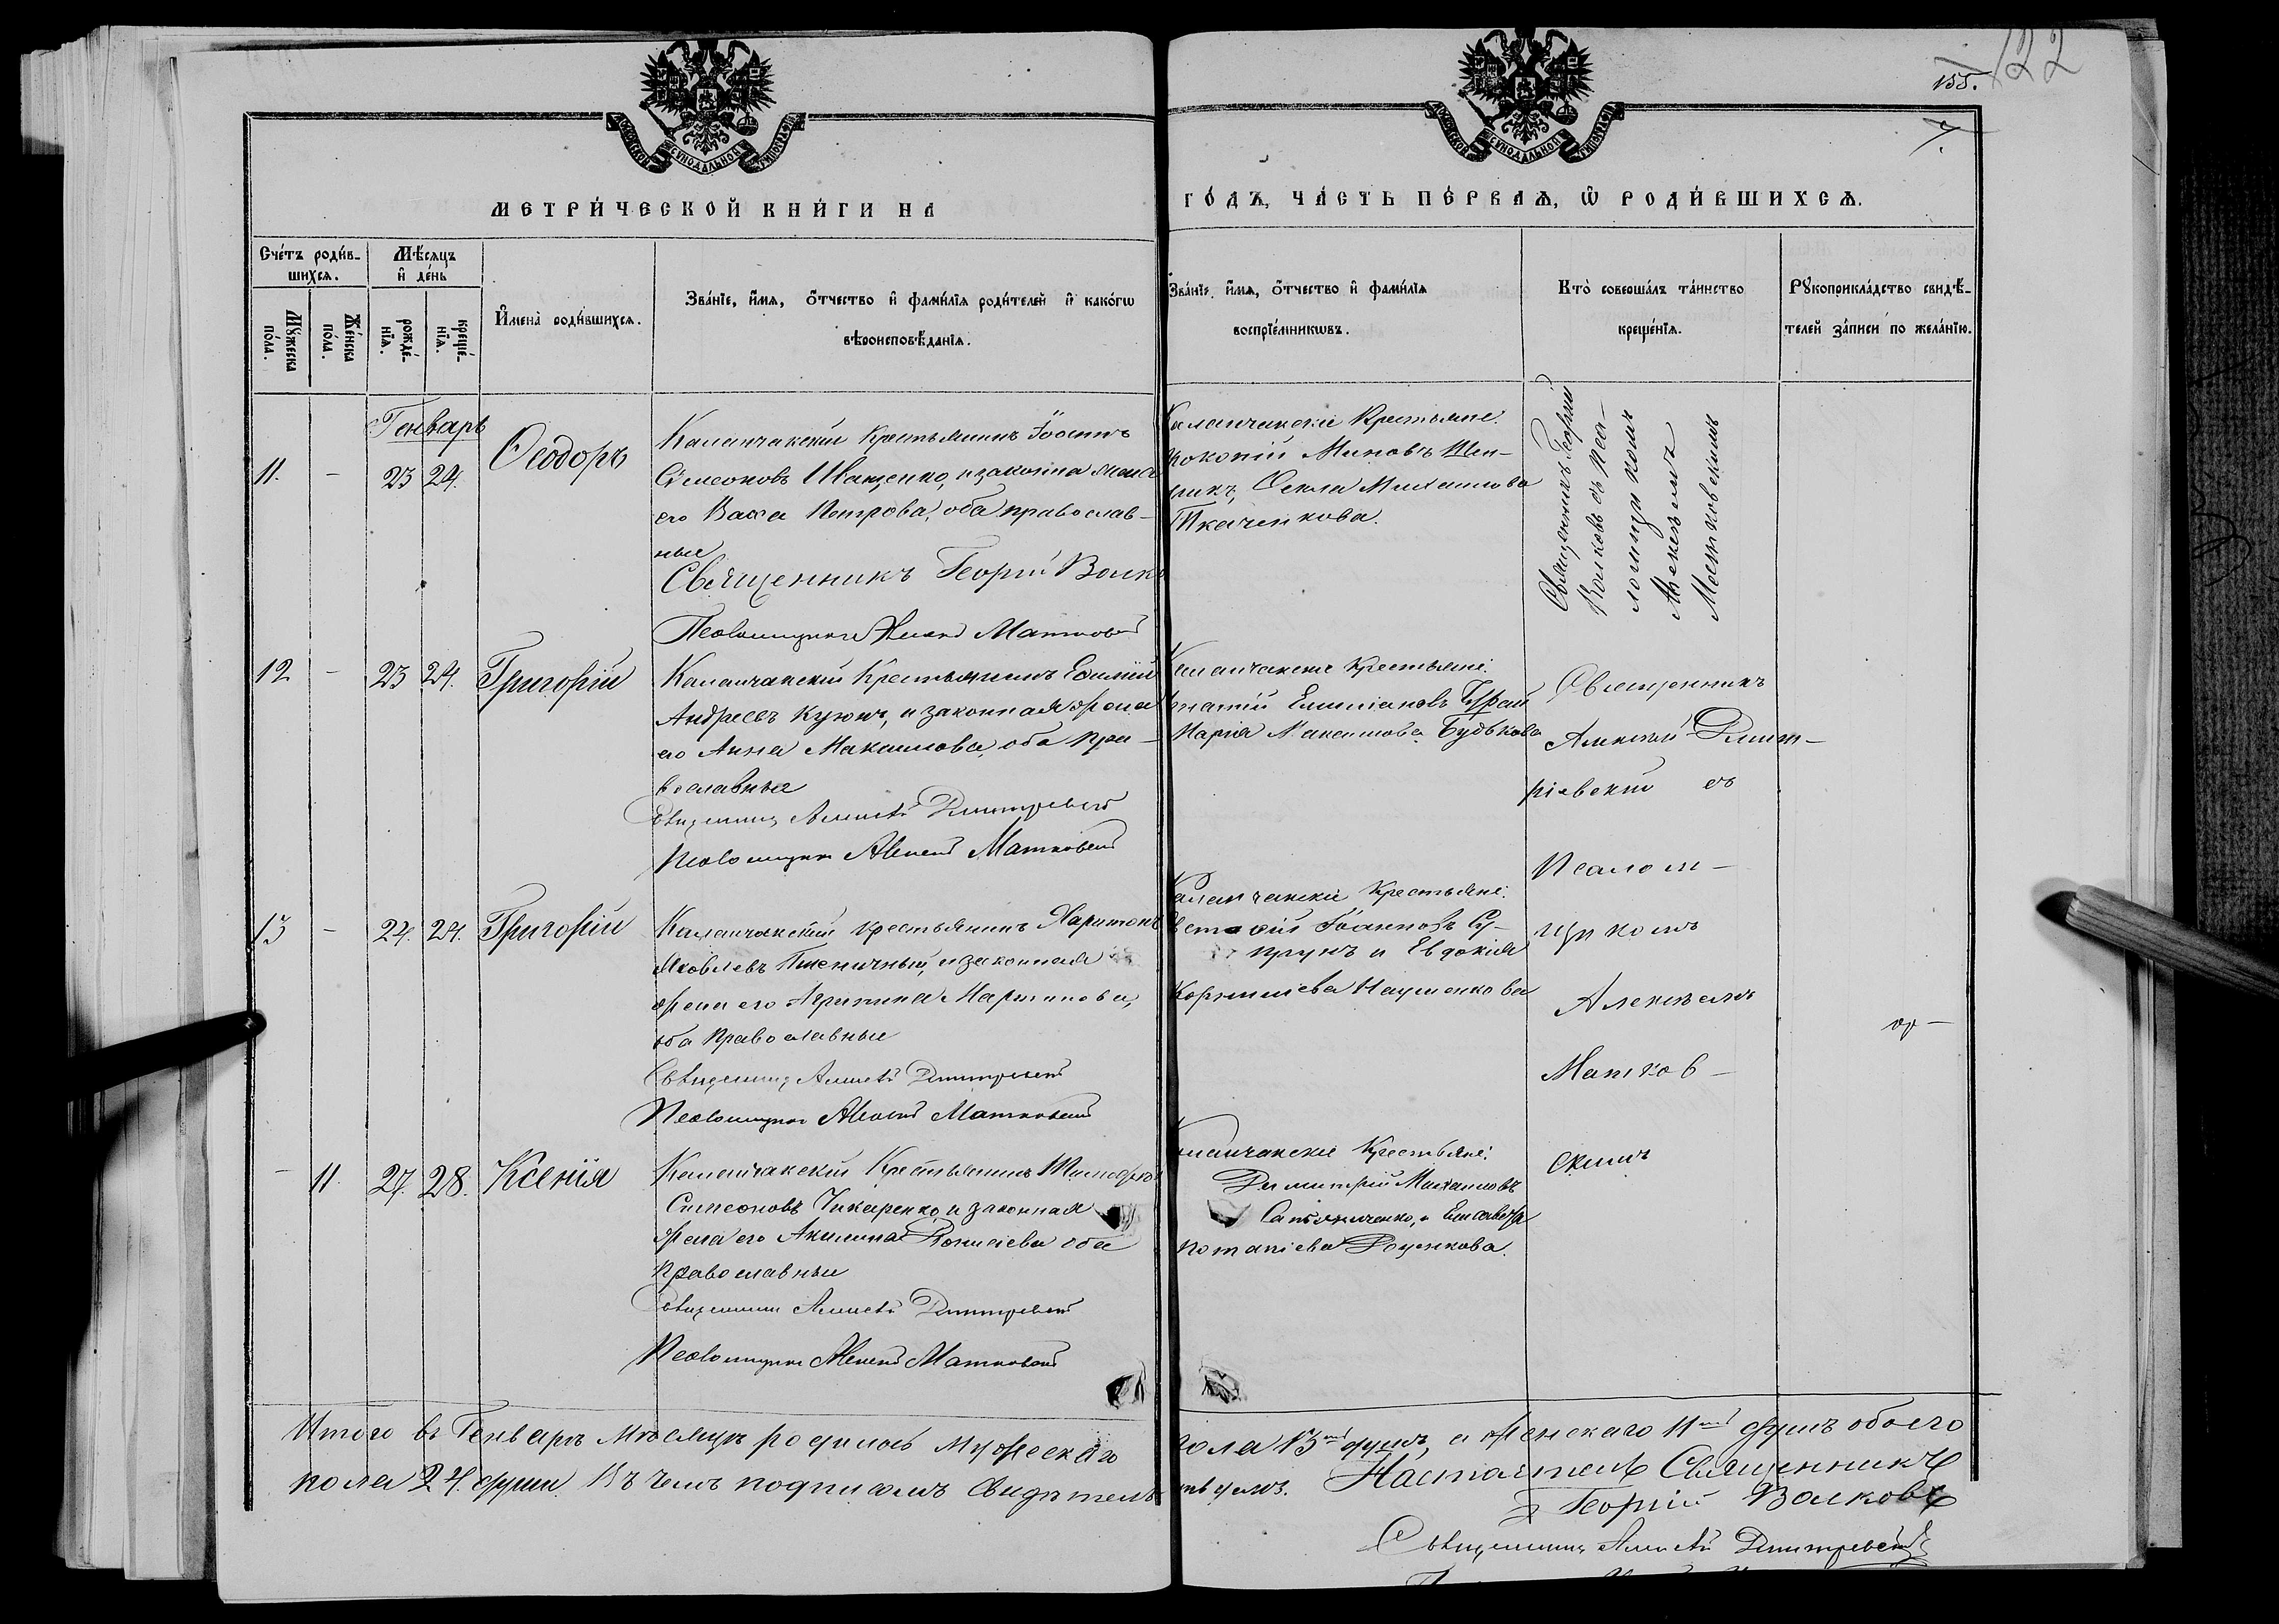 122
155.
7.
МОСКОВСКОЙ СѴНОДАЛЬНОЙ ТИПОГРАФІИ
МОСКОВСКОЙ СѴНОДАЛЬНОЙ ТИПОГРАФІИ
МЕТРИ́ЧЕСКОЙ КНИ́ГИ НА
ГО́ДЪ, ЧА́СТЬ ПЕ́РВАѦ, Ѿ РОДИ́ВШИХСѦ.
Сче́тъ роди́в-
шихсѧ.
Мꙋ́жеска
по́ла.
Же́нска
по́ла.
Мѣ́сѧцъ
и҆ де́нь
рожде́-
нїѧ.
креще́-
нїѧ.
И҆мена̀ роди́вшихсѧ.
Зва́нїе, и҆́мѧ, ѻ҆́тчество и҆ фами́лїѧ роди́телей и҆ како́гѡ
вѣроисповѣ́данїѧ.
Зва́нїе, и҆́мѧ, ѻ҆́тчество и҆ фами́лїѧ
воспрїе́мникѡвъ.
Кто̀ соверша́лъ та́инство
креще́нїѧ.
Рꙋкоприкла́дство свидѣ́-
телей за́писи по жела́нїю.
Генварь
11. - 23 24. Ѳеодоръ
Каланчакскій Крестьянинъ Іоаннъ
Симеоновъ Иващенко, и законна жена
его Васса Петрова, оба православ-
ные
Священникъ Георгій Волко
Псаломщикъ Алексей Матковскій
Каланчакскіе Крестьяне:
Прокопій Миновъ
Ѳекла Михаилова
Ткаченкова.
Священникъ Георгій
Волковъ съ Пса-
ломщикомъ
Алексѣемъ
Матковскимъ
12 - 23 24. Григорій
Каланчакскій Крестьянинъ Евфимій
Андреевъ Куюнъ, и законная жена
его Анна Максимова, оба пра-
вославные
Священникъ Алексѣй Дмитріевскій
Псаломщикъ Алексей Матковскій
Каланчакскіе Крестьяне:
Игнатій Емиліановъ
Марія Максимова Будькова
Священникъ
Алексѣй Димит-
ріевскій съ
Псалом-
щикомъ
Алексѣемъ
Матков-
скимъ
13 - 24. 24. Григорій
Каланчакскій крестьянинъ Харитонъ
Яковлевъ Пшеничный, и законная
жена его Агрипина Мартинова,
оба Православные
Священникъ Алексѣй Дмитріевскій
Псаломщикъ Алексей Матковскій
Каланчакскіе Крестьяне:
Евстафій Іоанновъ Су-
прунъ и Евдокія
Корнилиева Науменкова
- 11. 27. 28. Ксенія
Каланчакскій Крестьянинъ Тимофей
Симеоновъ Чикаренко, и законная
жена его Акилина Діонисіева оба
Православные
Священникъ Алексѣй Дмитріевскій
Псаломщикъ Алексей Матковскій
Каланчакскіе Крестьяне:
Димитрій Михаиловъ
и Елисавета
Потапіева Доценкова.
Итого въ Генварѣ мѣсяцѣ родилось мужескаго
пола 13ть душъ, а женскаго 11ть душъ обоего
пола 24. души. Въ чемъ подписомъ свидѣтель-
ствуемъ. Настоятель Священникъ
Георгій Волковъ
Священникъ Алексѣй Дмитріевскій